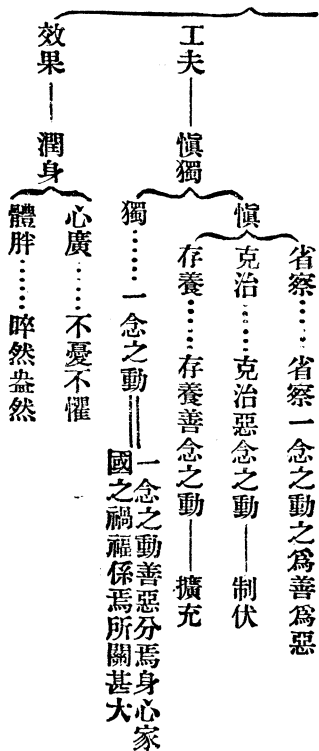 工夫——愼獨
愼
省察……省察一念之動之爲善爲惡
克治……克治惡念之動——制伏
存養……存養善念之動——擴充
獨……一念之動
一念之動善惡分焉身心家
國之禍福係焉所關甚大
效果——潤身
心廣……不憂不懼
體胖……睟然盎然